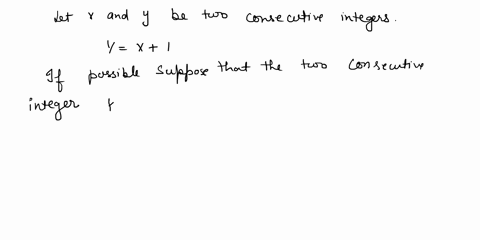 Let x and y be two consecutive integers.
y = x + 1
If possible suppose that the two consecutive
integer